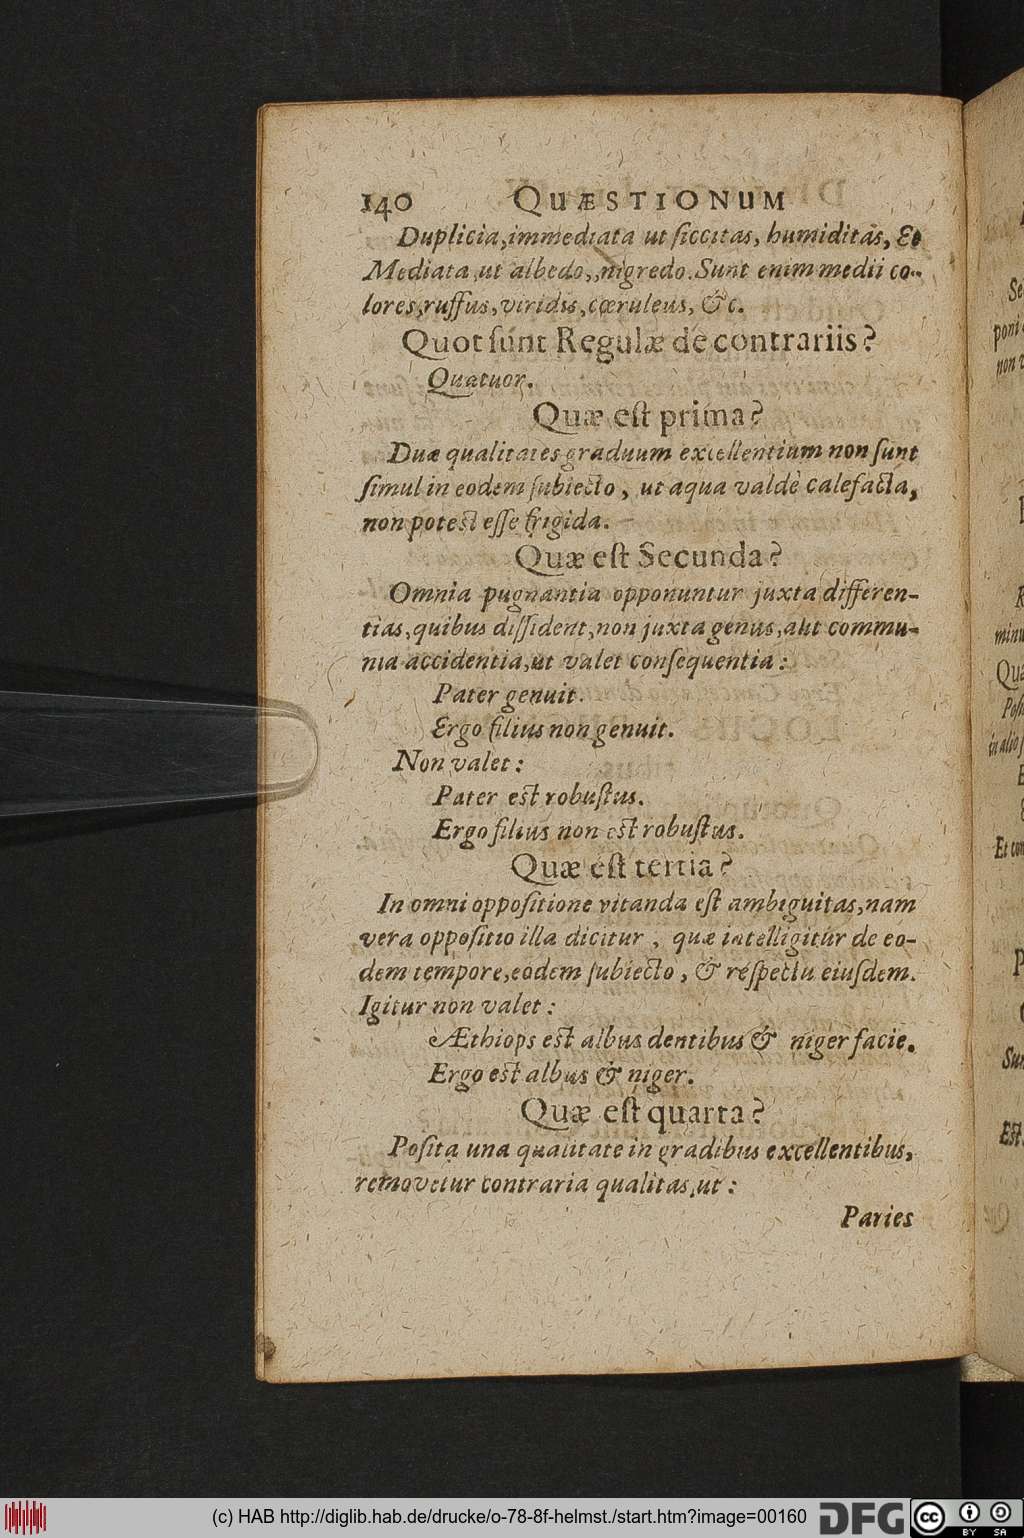 140 QUÆSTIONUM
Duplicia, immediata ut ſiccitas, humiditas, &
Mediata, ut albedo, nigredo. Sunt enim medii co-
lores, ruffus, viridis, cœruleus, &c.
Quot ſunt Regulæ de contrariis?
Quatuor.
Quæ eſt prima?
Duæ qualitates graduum excellentium non ſunt
ſimul in eodem ſubiecto, ut aqua valdè calefacta,
non potest eſſe frigida.
Quæ eſt Secunda?
Omnia pugnantia opponuntur juxta differen-
tias, quibus diſſident, non juxta genus, aut commu-
nia accidentia, ut valet conſequentia:
Pater genuit.
Ergo filius non genuit.
Non valet:
Pater est robuſtus.
Ergo filius non est robuſtus.
Quæ eſt tertia?
In omni oppoſitione vitanda eſt ambiguitas, nam
vera oppoſitio illa dicitur, quæ intelligitur de eo-
dem tempore, eodem ſubiecto, & reſpectu eiuſdem.
Igitur non valet:
Æthiops est albus dentibus & niger facie.
Ergo est albus & niger.
Quæ eſt quarta?
Poſita una qualitate in gradibus excellentibus,
removetur contraria qualitas, ut:
Paries
(c) HAB http://diglib.hab.de/drucke/o-78-8f-helmst./start.htm?image=00160 DFG cc BY SA